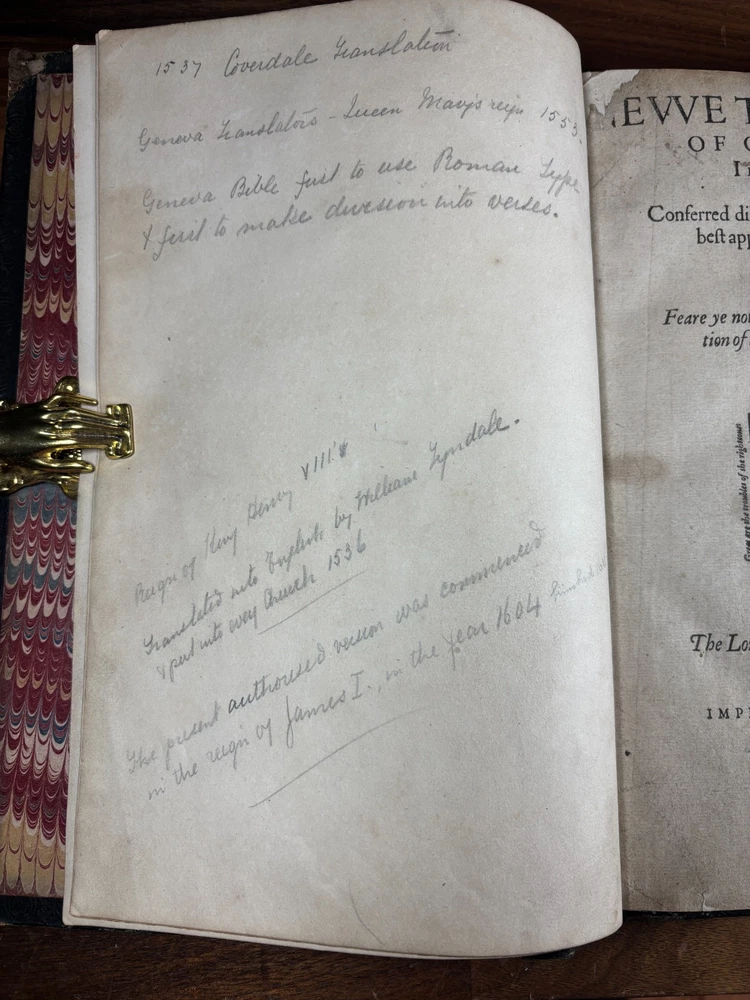 1537 Coverdale Translation
Geneva Translation - Queen Mary's reign 1553.
Geneva Bible first to use Roman Type
& first to make division into verses.
Reign of King Henry VIII
Translated into English by William Tyndale.
& put into every Church 1536
The present authorised version was commenced
in the reign of James I., in the year 1604 finished
EVVE T
OF
Conferred di
best app
Feare ye not
tion of
Great are the troubles of the righteous
The Lo
IMP